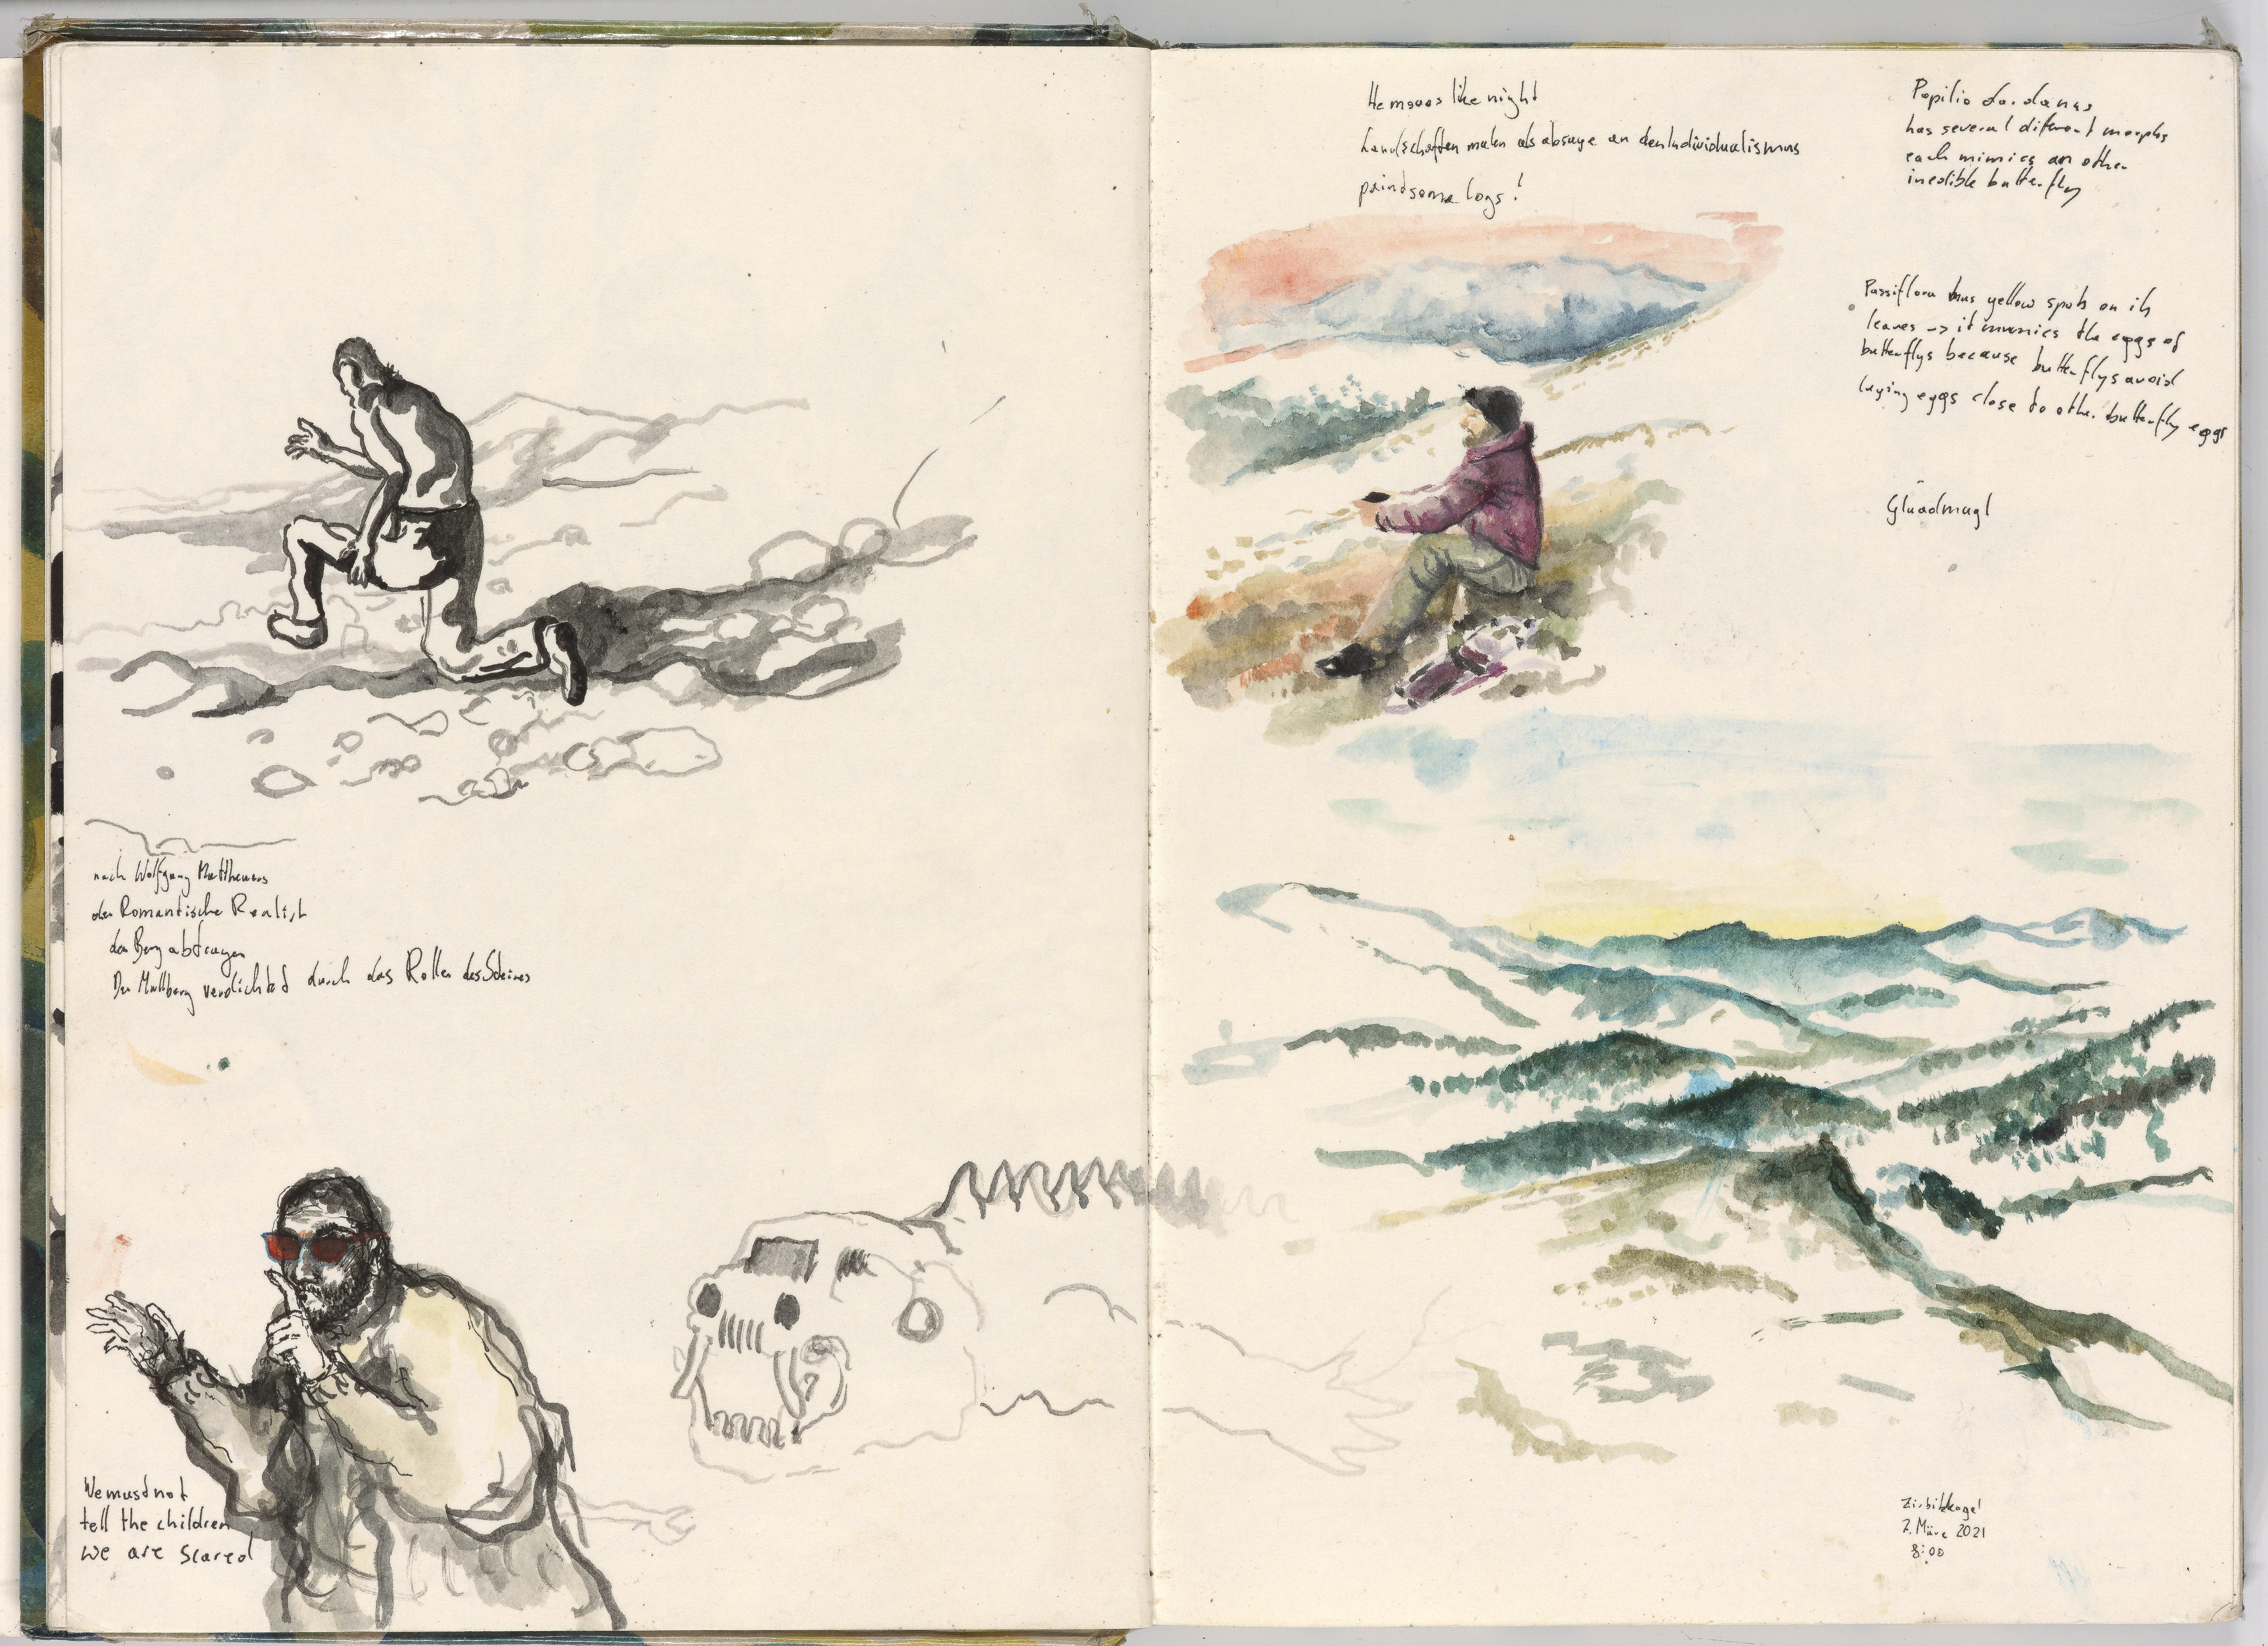 nach Wolfgang Mattheuers
der Romantische Realist
den Berg abtragen
Der Müllberg verdichtet durch das Rollen des Steines
We must not
tell the children
we are scared
He moves like night
Landschaften malen als absage an den Individualismus
paint some logs!
Papilio dardanus
has several diferent morphs
each mimics an other
inedible butterfly
Passiflora has yellow spots on its
leaves -> it mimics the eggs of
butterflys because butterflys avoid
laying eggs close to other butterfly eggs
Zirbitzkogel
2021
8:00